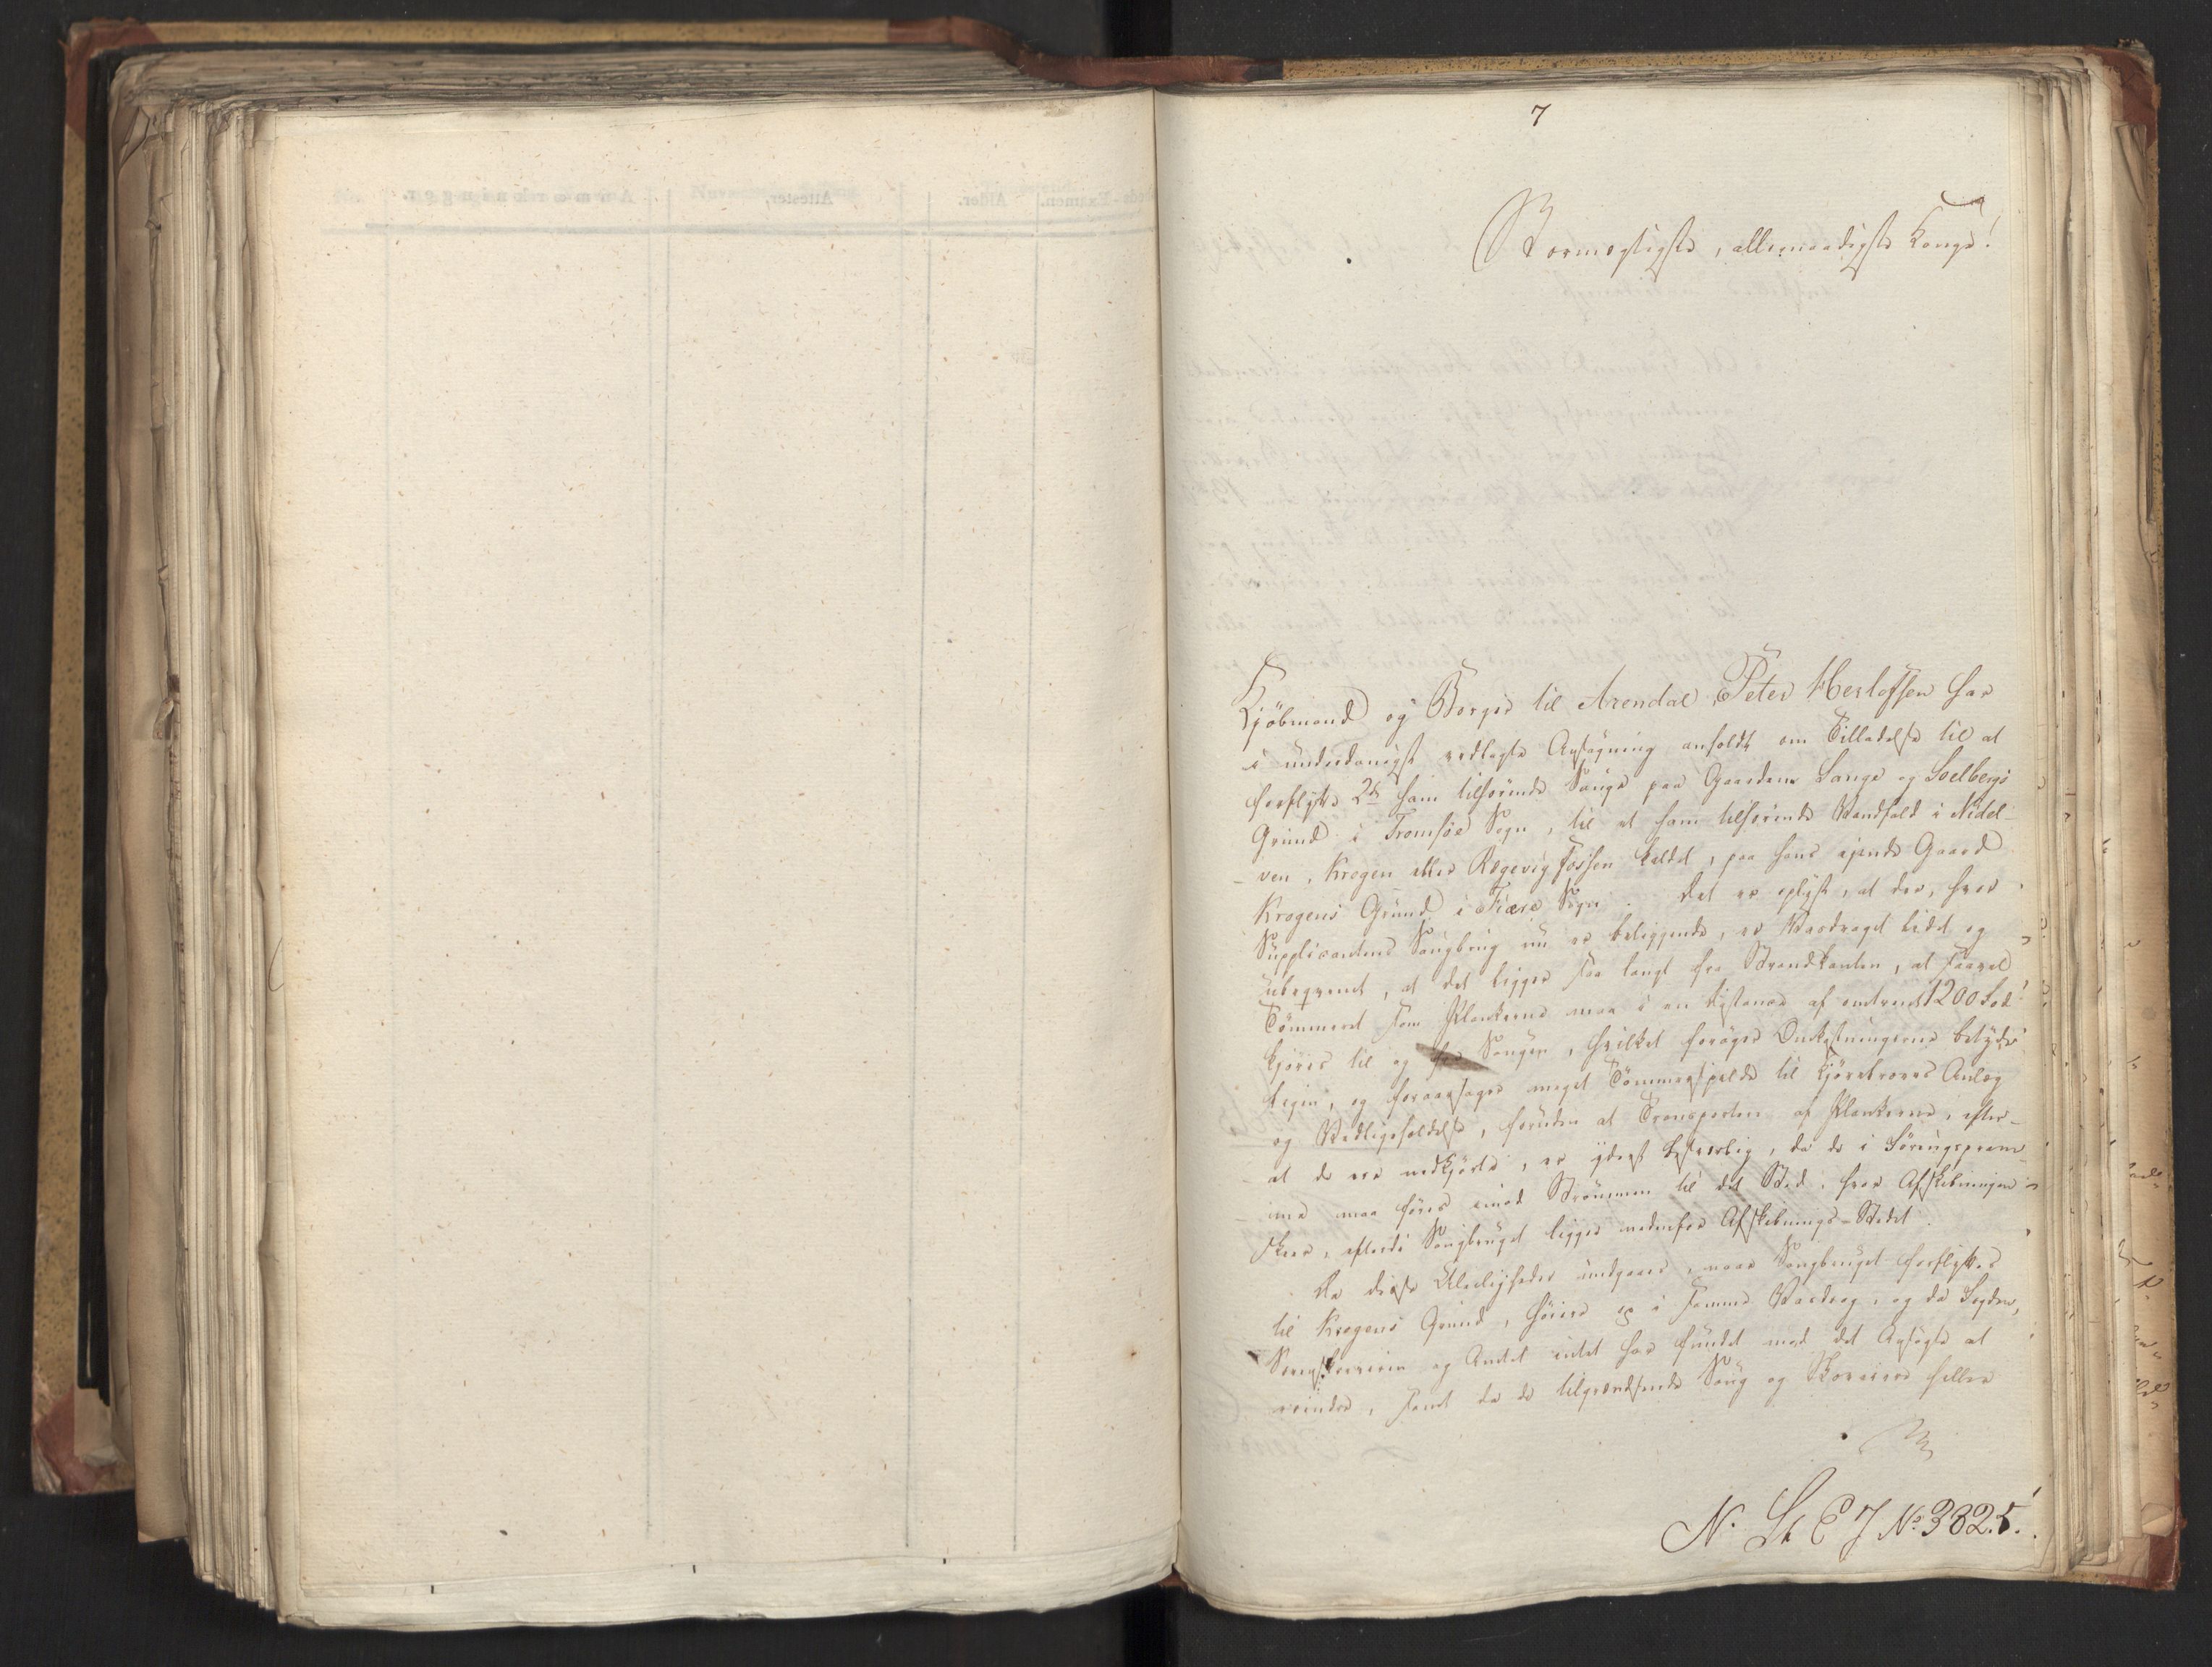 7
Stormægtigste, allernaadigste Konge!
Kjöbmand og Borger til Arendal, Peter Herlofsen har
i underdanigst vedlagte Ansøgning anholdt om Tilladelse til at
forflytte 2de ham tilhørende Sauge paa Gaardene Lange og Soelbergs
Grund i Tromsøe Sogn, til et ham tilhørende Vandfald i Nidel-
ven, Krogen eller Rægevig fossen kaldet, paa hans ejende Gaard
Krogens Grund i Fiære Sogn. Det er oplyst, at der, hvor
Supplicantens Saugbrug nu er beliggende, er Vasdraget lidet og
ubeqvemt, at det ligger saa langt fra Strandkanten, at saavel
Tømmeret som Plankerne maa i en Distance af omtrent 1200 Fod
kjøres til og fra Saugen, hvilket forøger Omkostningerne betyde-
ligen, og foraarsager meget Tømmerspilde til Kjørebroers Anlæg
og Vedligeholdelse, foruden at Transporten af Plankerne, efter-
at de ere nedkjørte, er yderst besværlig, da de i Føringspram-
me maa føres imod Strømmen til det Sted, hvor Afskibningen
skeer, efterdi Saugbruget ligger nedenfor Afskibnings-Stedet.
Da disse Uleiligheder undgaaes, naar Saugbruget forflyttes
til Krogens Grund, høiere op i samme Vasdrag, og da Fogden,
og Amtet intet har fundet mod det Ansøgte at
erindre, samt da de tilgrændsende Saug og Skoveiere heller
N. St E J No. 3825.